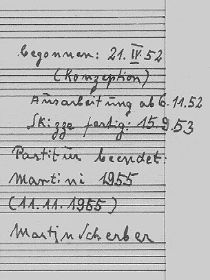 begonnen: 21. IV 52
(Konzeption)
Ausarbeitung ab 6.11.52
Skizze fertig: 15.9.53
Partitur beendet:
Martini 1955
(11.11.1955)
Martin Scherber